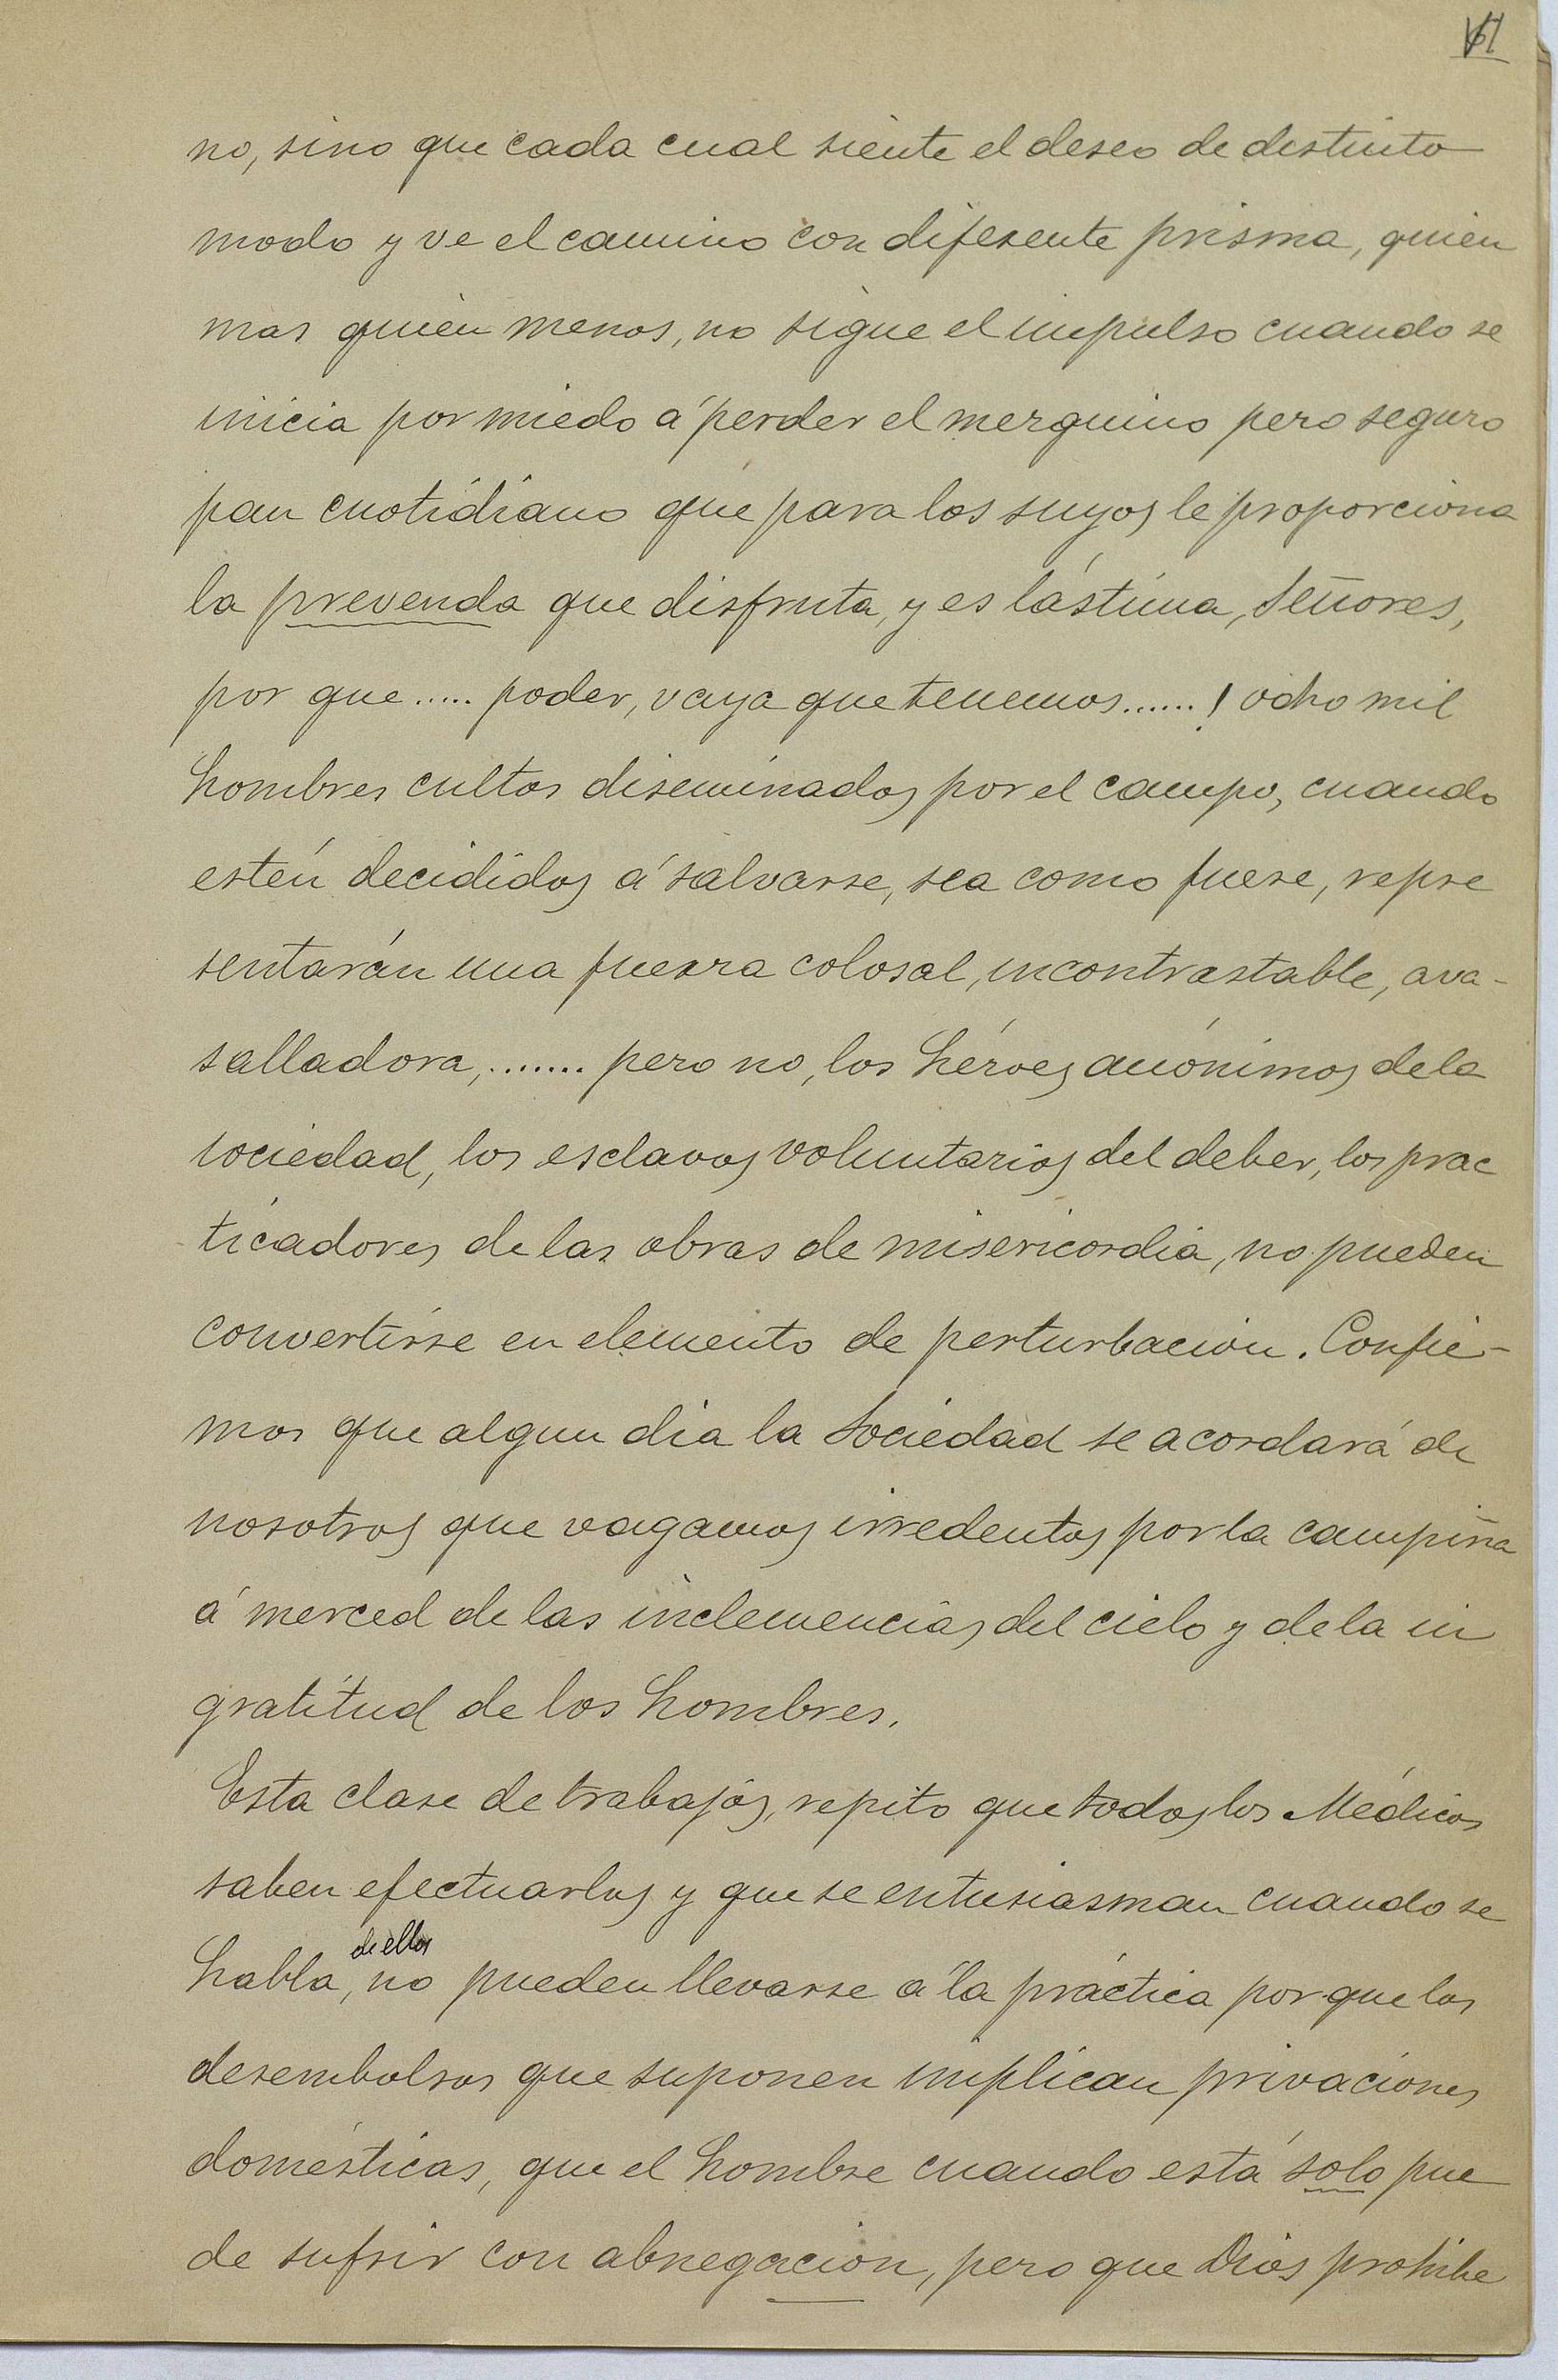 no, sino que cada cual siente el deseo de distinto
modo y ve el camino con diferente prisma, quien
mas quien menos, no sigue el impulso cuando se
inicia por miedo á perder el mezquino pero seguro
pan cuotidiano que para los suyos le proporciona
la prevenda que disfruta, y es lástima, Señores,
por que..... poder, vaya que tenemos......! ocho mil
hombres cultos diseminados por el campo, cuando
estén decididos á salvarse, sea como fuere, repre
sentarán una fuerza colosal, incontrastable, ava-
salladora,....... pero no, los héroes anónimos de la
sociedad, los esclavos voluntarios del deber, los prac
ticadores de las obras de misericordia, no pueden
convertirse en elemento de perturbacion. Confie-
mos que algun dia la Sociedad se acordará de
nosotros que vagamos irredentos por la campiña
á merced de las inclemencias del cielo y de la in
gratitud de los hombres.
Esta clase de trabajos, repito que todos los Médicos
saben efectuarlos y que se entusiasman cuando se
habla de ellos, no pueden llevarse a la práctica por que los
desembolsos que suponen implican privaciones
domésticas, que el hombre cuando está solo pue
de sufrir con abnegacion, pero que Dios prohibe